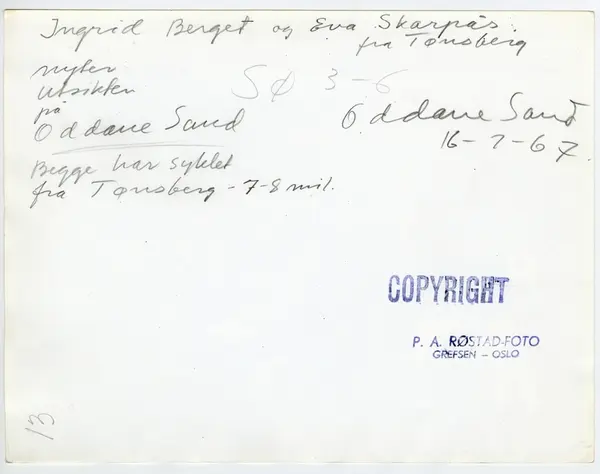 Ingrid Berget og Eva Skarpås
fra Tønsberg
nyter
utsikten
på
Oddane Sand
Begge har syklet
fra Tønsberg - 7-8 mil.
SØ 3-6
Oddane Sand
16-7-67.
COPYRIGHT
P. A. RØSTAD-FOTO
GREFSEN – OSLO
13